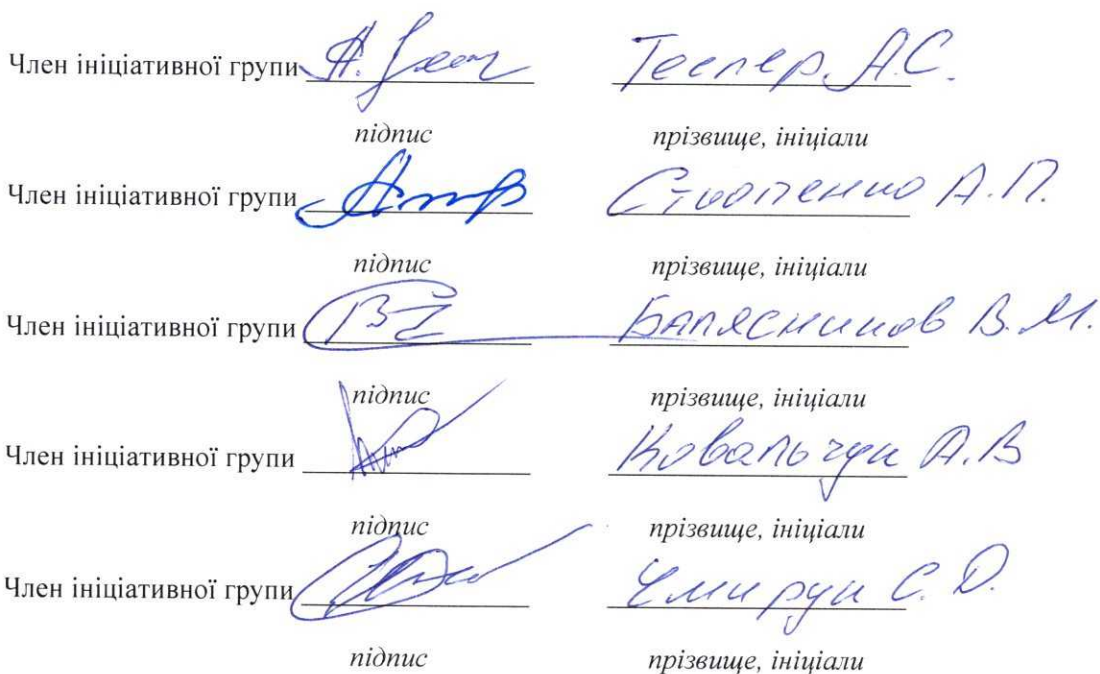 Член ініціативної групи Геспер А.С.
підпис прізвище, ініціали
Член ініціативної групи А.П.
підпис прізвище, ініціали
Член ініціативної групи Балясников В.М.
підпис прізвище, ініціали
Член ініціативної групи Ковальчук А.В
підпис прізвище, ініціали
Член ініціативної групи Чмирук С.D.
підпис прізвище, ініціали